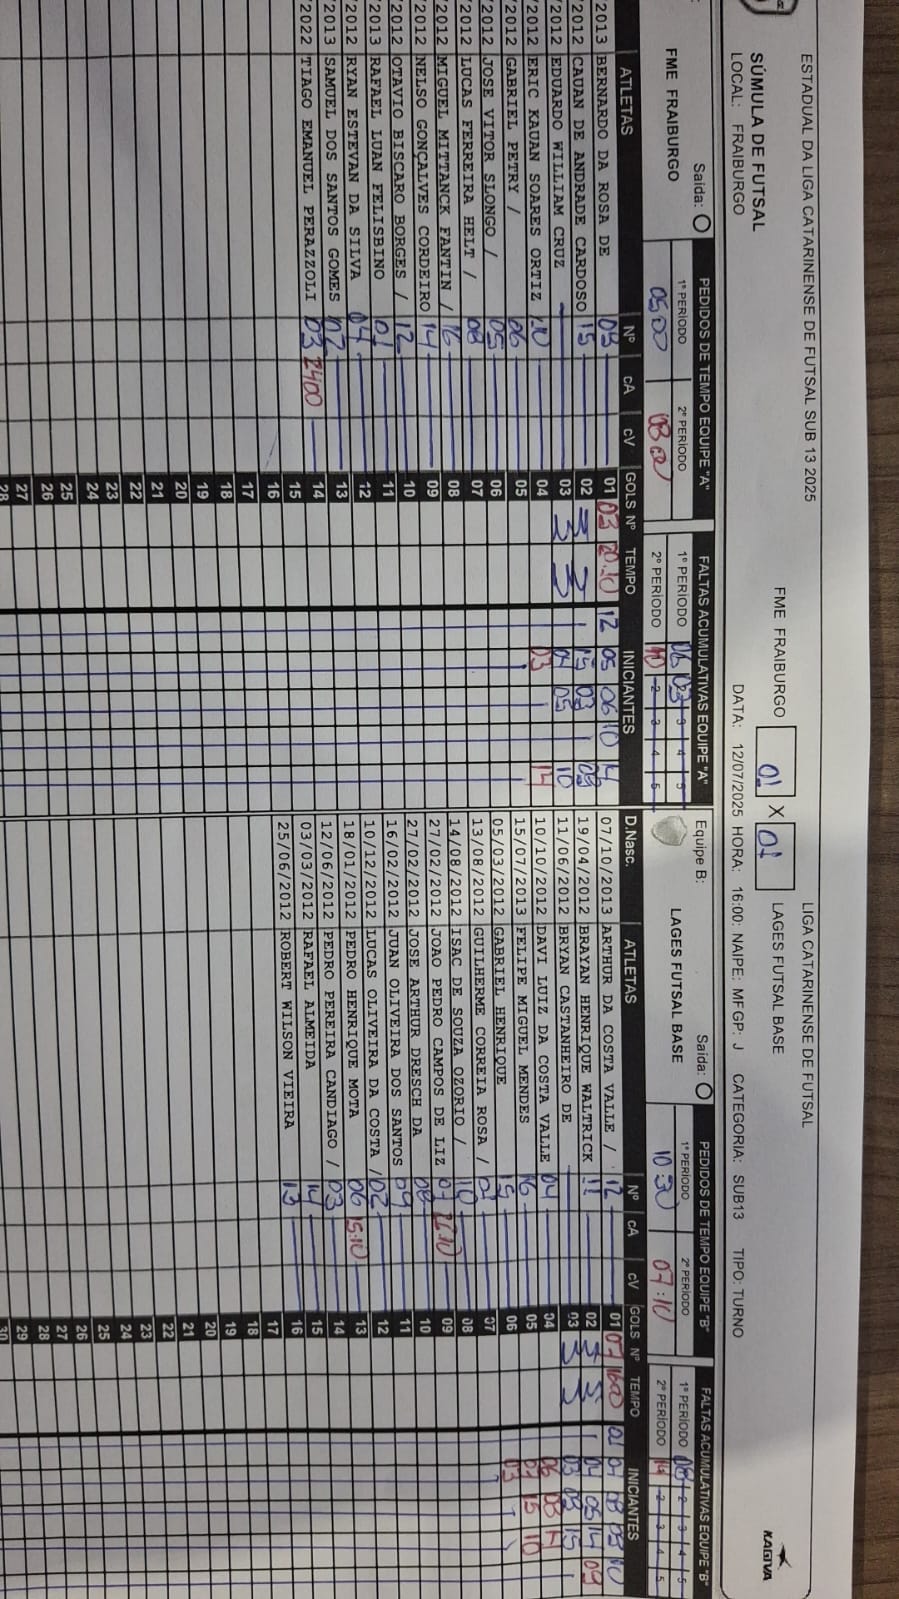 ESTADUAL DA LIGA CATARINENSE DE FUTSAL SUB 13 2025
LIGA CATARINENSE DE FUTSAL
KAGIVA
FME FRAIBURGO 01 X 01 LAGES FUTSAL BASE
SÚMULA DE FUTSAL
LOCAL: FRAIBURGO DATA: 12/07/2025 HORA: 16:00: NAIPE: MFGP: J CATEGORIA: SUB13 TIPO: TURNO
Saída: PEDIDOS DE TEMPO EQUIPE "A" FALTAS ACUMULATIVAS EQUIPE "A"
FME FRAIBURGO
1º PERÍODO 2º PERÍODO
05:00
1º PERÍODO
2º PERÍODO
ATLETAS Nº cA cV GOLS Nº TEMPO INICIANTES
2013 BERNARDO DA ROSA DE 01 03 20:10 12 05 06 10
2012 CAUAN DE ANDRADE CARDOSO 15 02
2012 EDUARDO WILLIAM CRUZ 03
2012 ERIC KAUAN SOARES ORTIZ 10 04 03 14
2012 GABRIEL PETRY / 06 05
2012 JOSE VITOR SLONGO / 05 06
2012 LUCAS FERREIRA HELT / 08 07
2012 MIGUEL MITTANCK FANTIN / 16 08
2012 NELSO GONÇALVES CORDEIRO 14 09
2012 OTAVIO BISCARO BORGES / 12 10
2013 RAFAEL LUAN FELISBINO 01 11
2012 RYAN ESTEVAN DA SILVA 04 12
2013 SAMUEL DOS SANTOS GOMES 02 13
2022 TIAGO EMANUEL PERAZZOLI 03 24:00 14
15
16
17
18
19
20
21
22
23
24
25
26
27
28
Equipe B: Saída: PEDIDOS DE TEMPO EQUIPE "B" FALTAS ACUMULATIVAS EQUIPE "B"
LAGES FUTSAL BASE
1º PERÍODO 2º PERÍODO
10:30 07:10
1º PERÍODO
2º PERÍODO
D.Nasc. ATLETAS Nº cA cV GOLS Nº TEMPO INICIANTES
07/10/2013 ARTHUR DA COSTA VALLE / 12 01 07 16:00
19/04/2012 BRAYAN HENRIQUE WALTRICK 11 02
11/06/2012 BRYAN CASTANHEIRO DE 03
10/10/2012 DAVI LUIZ DA COSTA VALLE 04 04
15/07/2013 FELIPE MIGUEL MENDES 16 05
05/03/2012 GABRIEL HENRIQUE 15 06
13/08/2012 GUILHERME CORREIA ROSA / 01 07
14/08/2012 ISAC DE SOUZA OZORIO / 10 08
27/02/2012 JOAO PEDRO CAMPOS DE LIZ 07 09
27/02/2012 JOSE ARTHUR DRESCH DA 08 10
16/02/2012 JUAN OLIVEIRA DOS SANTOS 09 11
10/12/2012 LUCAS OLIVEIRA DA COSTA / 02 12
18/01/2012 PEDRO HENRIQUE MOTA 06 15:10 13
12/06/2012 PEDRO PEREIRA CANDIAGO / 03 14
03/03/2012 RAFAEL ALMEIDA 14 15
25/06/2012 ROBERT WILSON VIEIRA 13 16
17
18
19
20
21
22
23
24
25
26
27
28
29
30